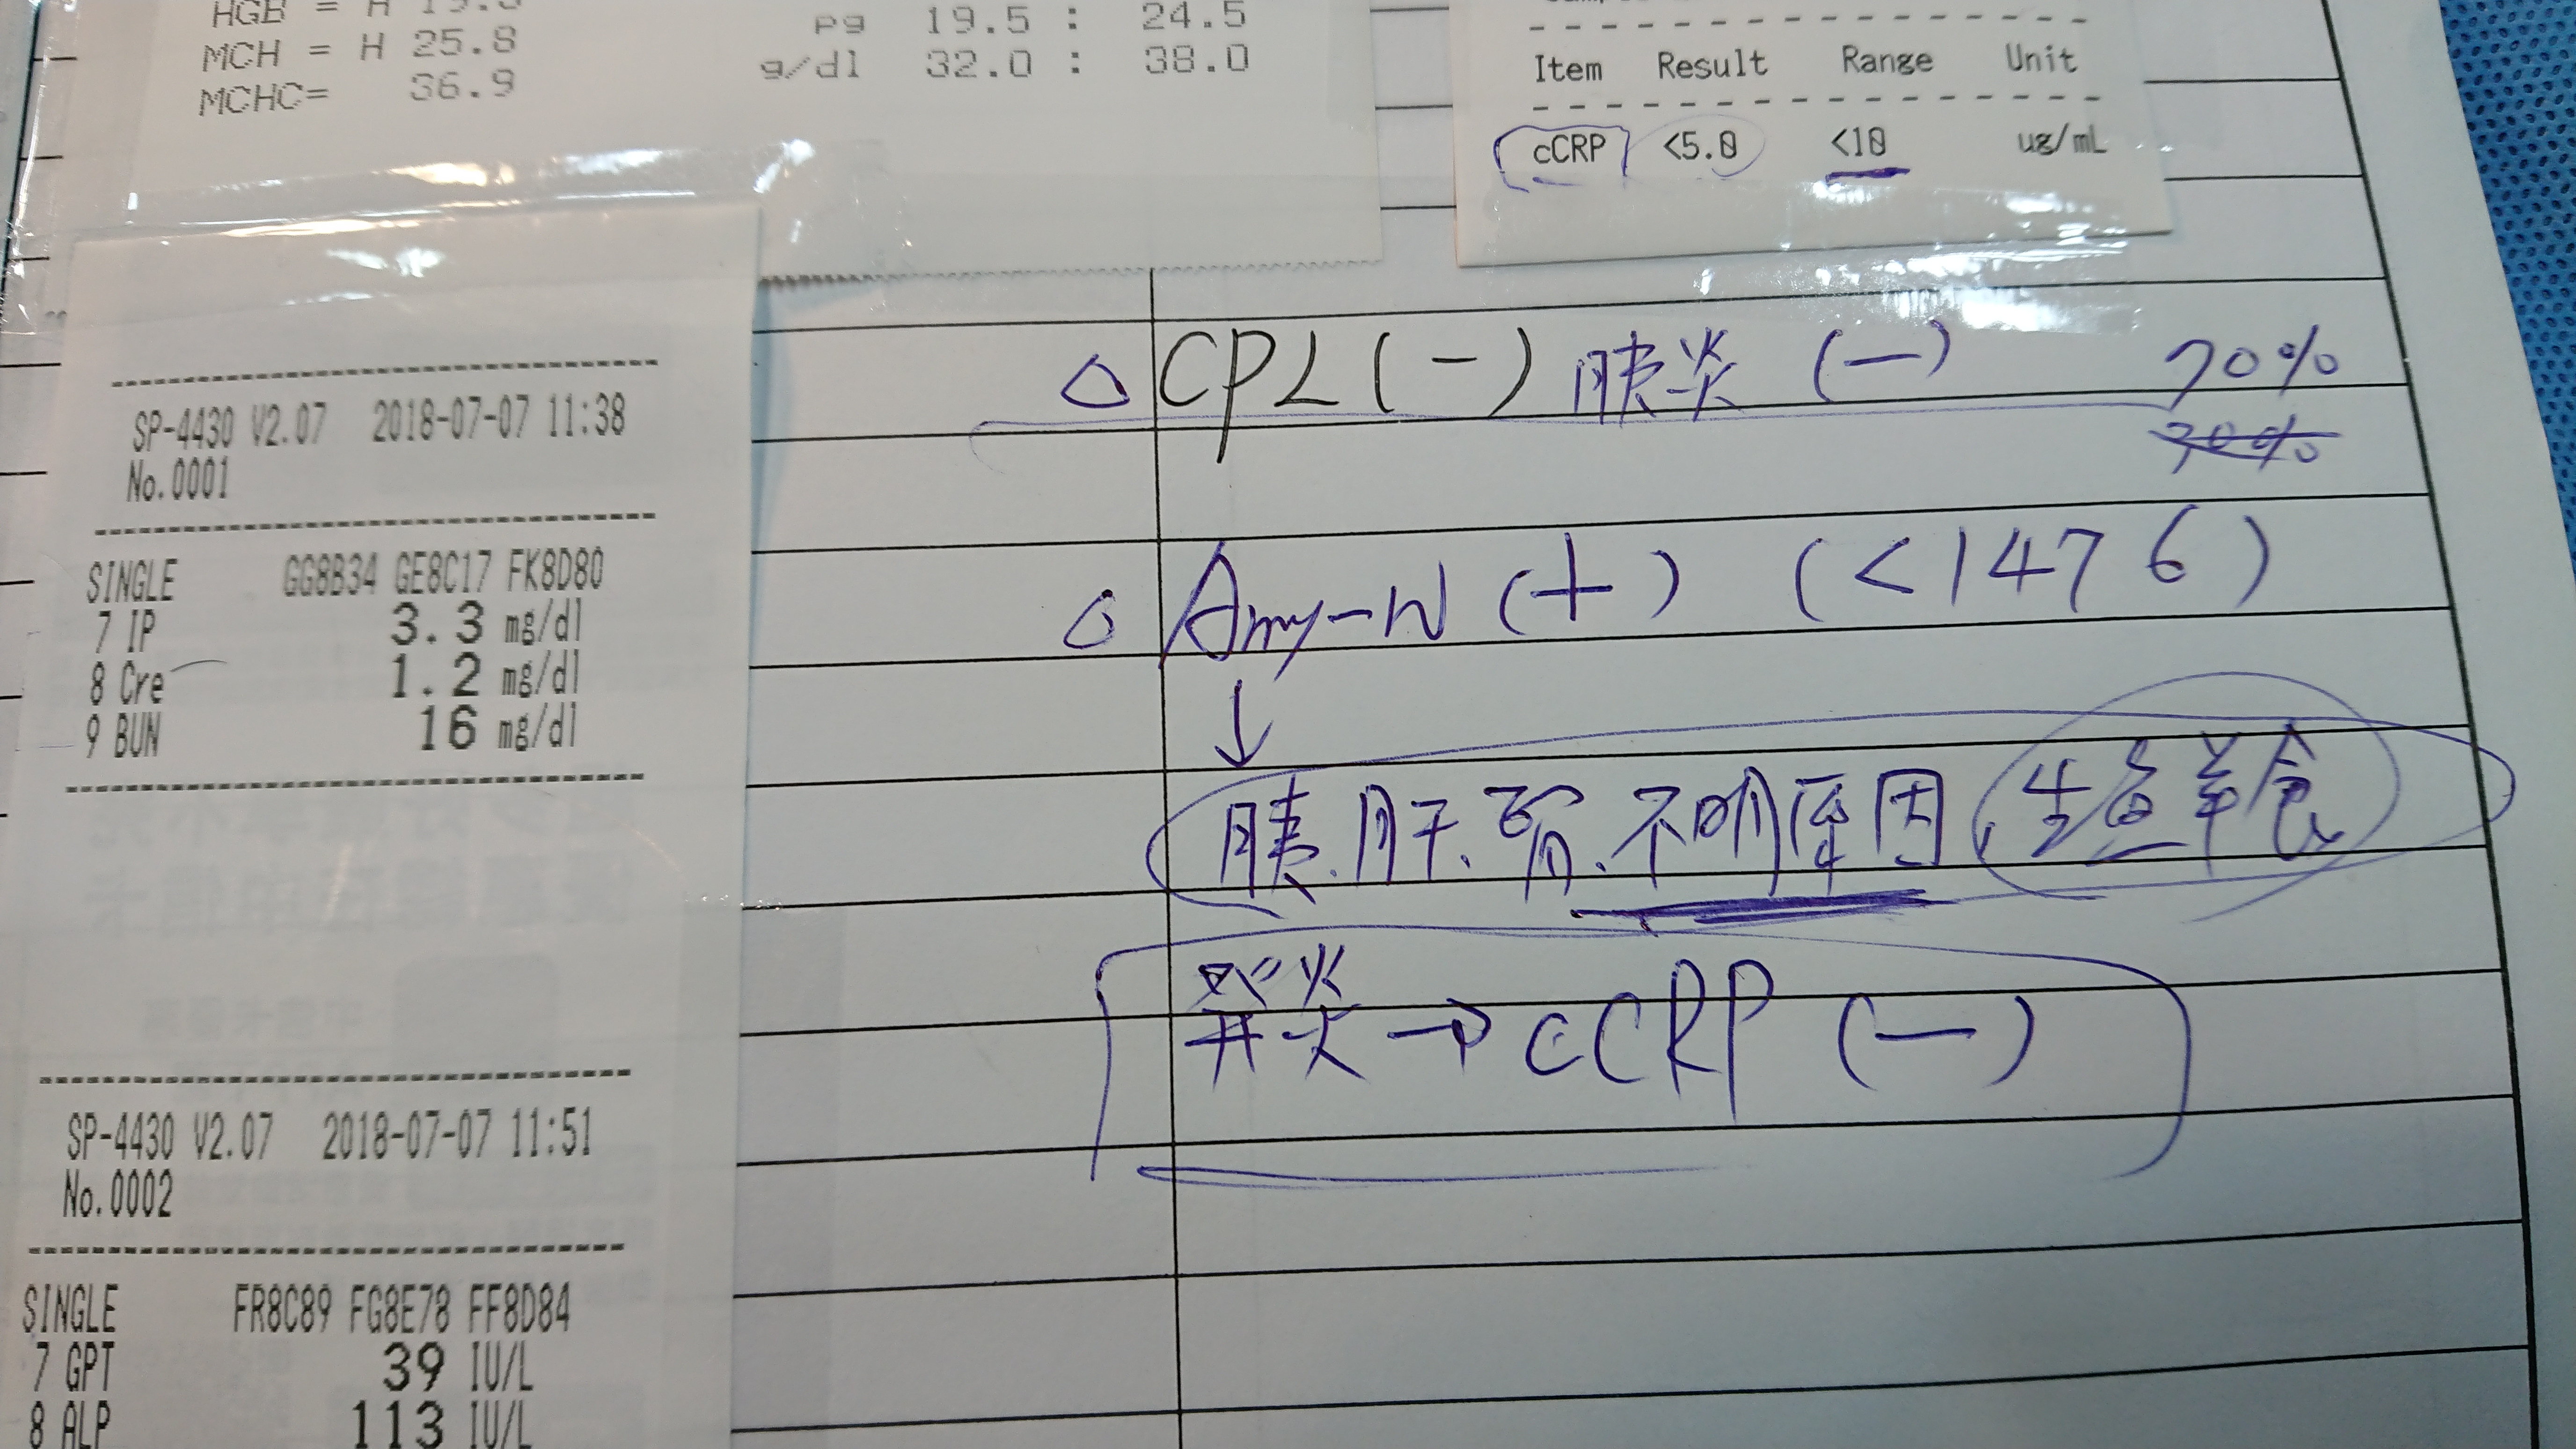 HGB = H
MCH = H 25.8 pg 19.5 : 24.5
MCHC= 36.9 g/dl 32.0 : 38.0
Item Result Range Unit
cCRP <5.0 <10 ug/mL
SP-4430 V2.07 2018-07-07 11:38
No.0001
SINGLE GG8B34 GE8C17 FK8D80
7 IP 3.3 mg/dl
8 Cre 1.2 mg/dl
9 BUN 16 mg/dl
SP-4430 V2.07 2018-07-07 11:51
No.0002
SINGLE FR8C89 FG8E78 FF8D84
7 GPT 39 IU/L
8 ALP 113 IU/L
△ CPL (-) 胰炎 (-) 70%
△ Amy-N (+) (<1476)
↓
胰.肝.腎.不明原因 生魚羊食
發炎→cCRP (-)